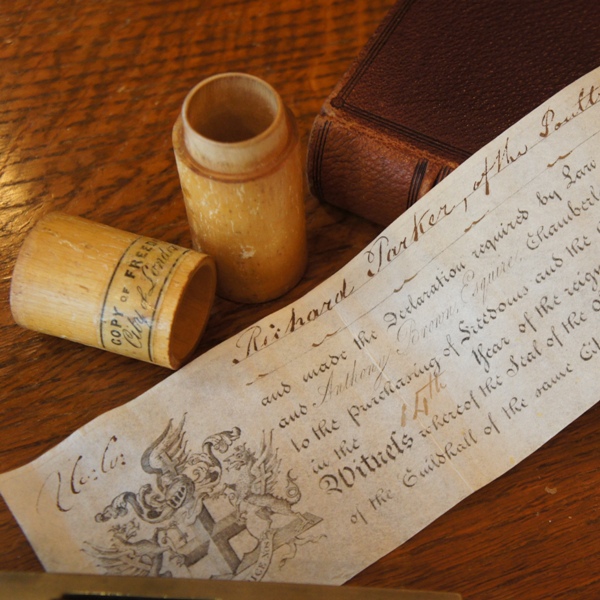 COPY OF FREE
City of London
Richard Parker, of the Poult
and made the Declaration required by Law
and Anthony Brown Esquire, Chamberl
to the purchasing of Freedoms and the
in the 14th Year of the reign
Witness whereof the Seal of the O
of the Guildhall of the same Cit